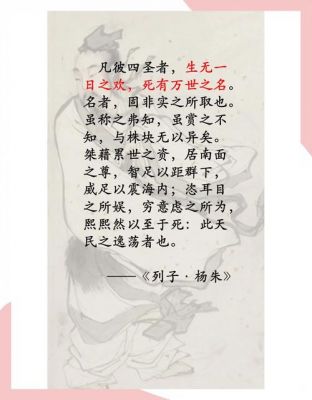 凡彼四圣者，生无一
日之欢，死有万世之名。
名者，固非实之所取也。
虽称之弗知，虽赏之不
知，与株块无以异矣。
桀藉累世之资，居南面
之尊，智足以距群下，
威足以震海内；恣耳目
之所娱，穷意虑之所为，
熙熙然以至于死：此天
民之逸荡者也。
——《列子·杨朱》